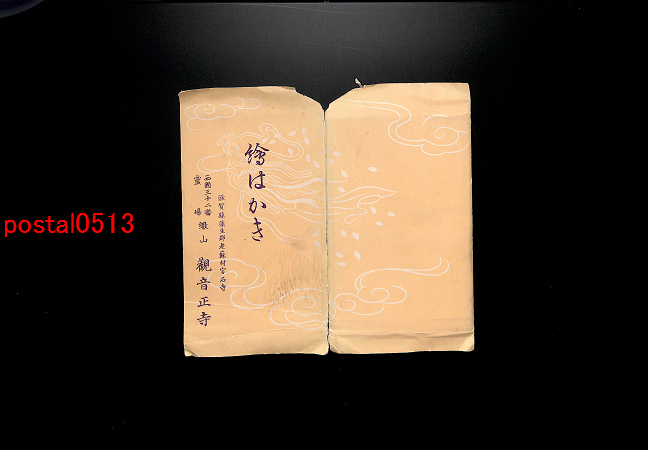 繪はかき
滋賀縣蒲生郡老蘇村宮石寺
西國三十二番
靈場
繖山 觀音正寺
postal0513